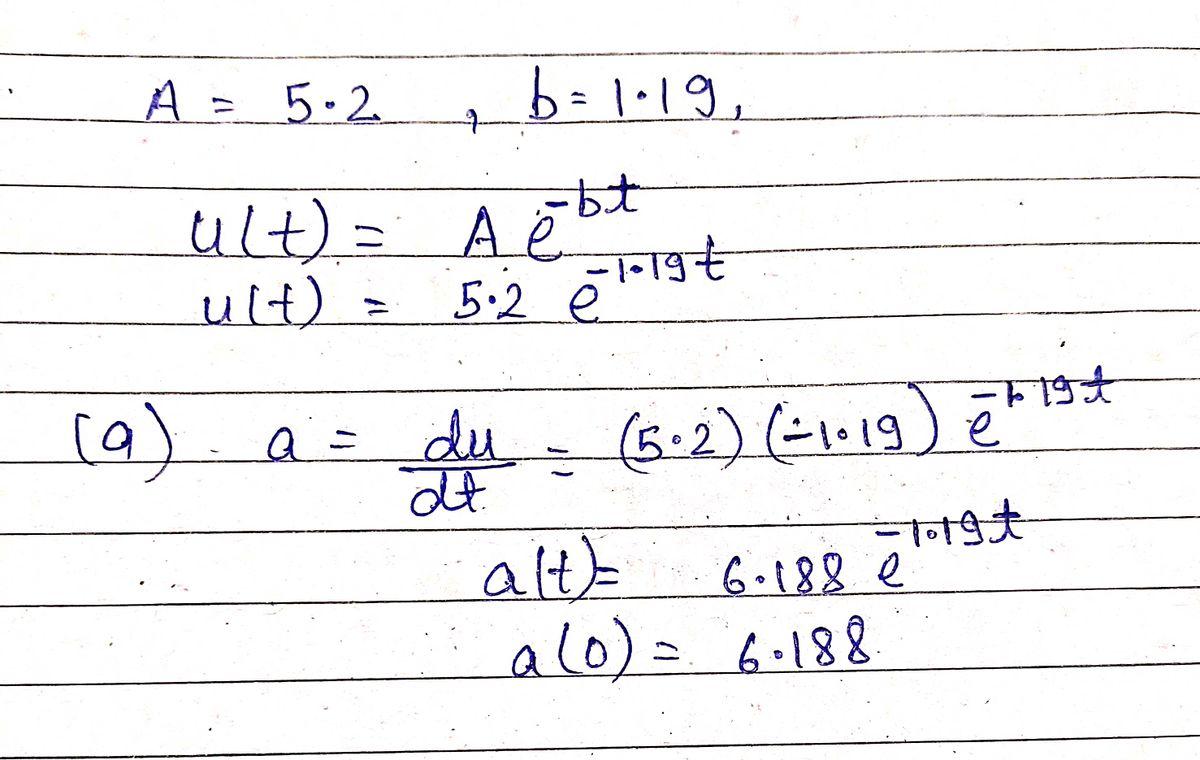 A = 5.2 , b = 1.19,
u(t) = A e^-bt
u(t) = 5.2 e^-1.19t
(a) a = du/dt = (5.2) (-1.19) e^-1.19t
a(t) = 6.188 e^-1.19t
a(0) = 6.188